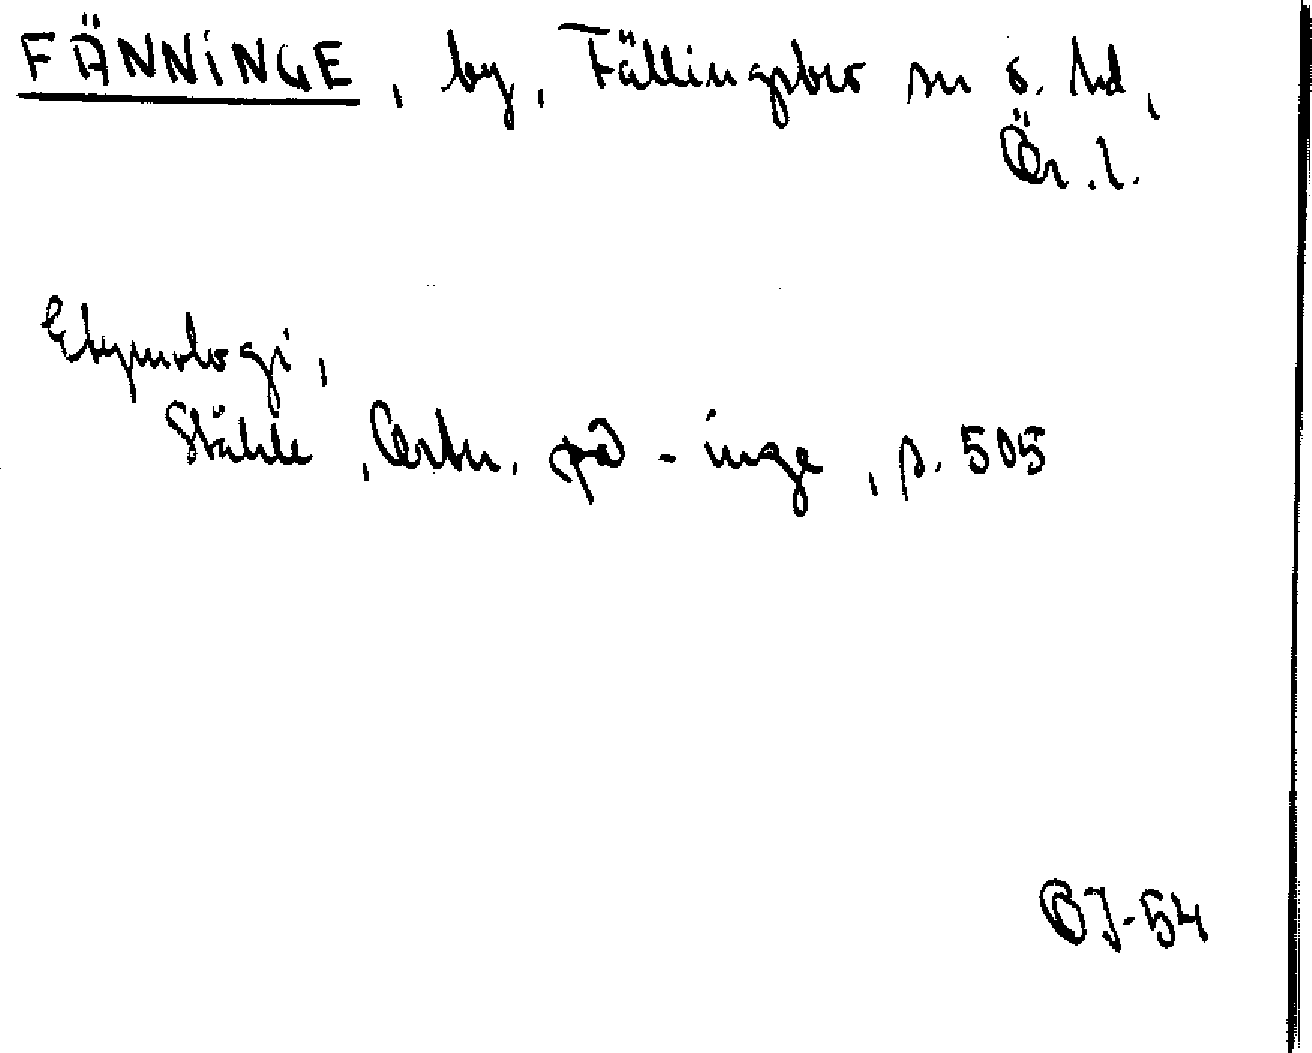 FÄNNINGE, by, Fällingsbro sn o. hd,
Ör. l.
Etymologi,
Ståhle, Ortn. på -inge, p. 505
OJ-54